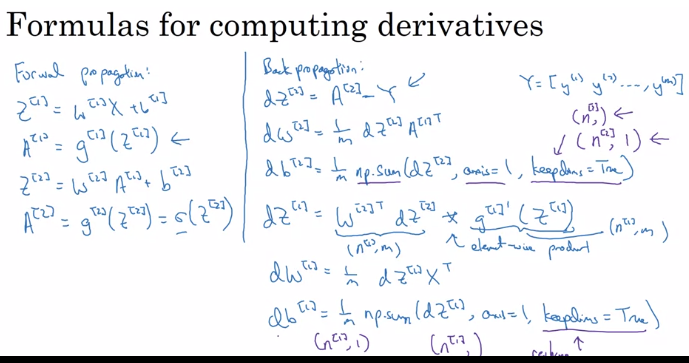 Formulas for computing derivatives
Forward propagation:
Z^[1] = W^[1] X + b^[1]
A^[1] = g^[1](Z^[1]) ←
Z^[2] = W^[2] A^[1] + b^[2]
A^[2] = g^[2](Z^[2]) = σ(Z^[2])
Back propagation:
dZ^[2] = A^[2] - Y
Y = [y^(1) y^(2) ..., y^(m)]
dW^[2] = 1/m dZ^[2] A^[1]T
(n^[2],) ←
(n^[2], 1) ←
db^[2] = 1/m np.sum(dZ^[2], axis=1, keepdims=True)
dZ^[1] = W^[2]T dZ^[2] * g^[1]'(Z^[1])
(n^[1], m)
element-wise product
(n^[1], m)
dW^[1] = 1/m dZ^[1] X^T
db^[1] = 1/m np.sum(dZ^[1], axis=1, keepdims=True)
(n^[1], 1)
(n^[1],)